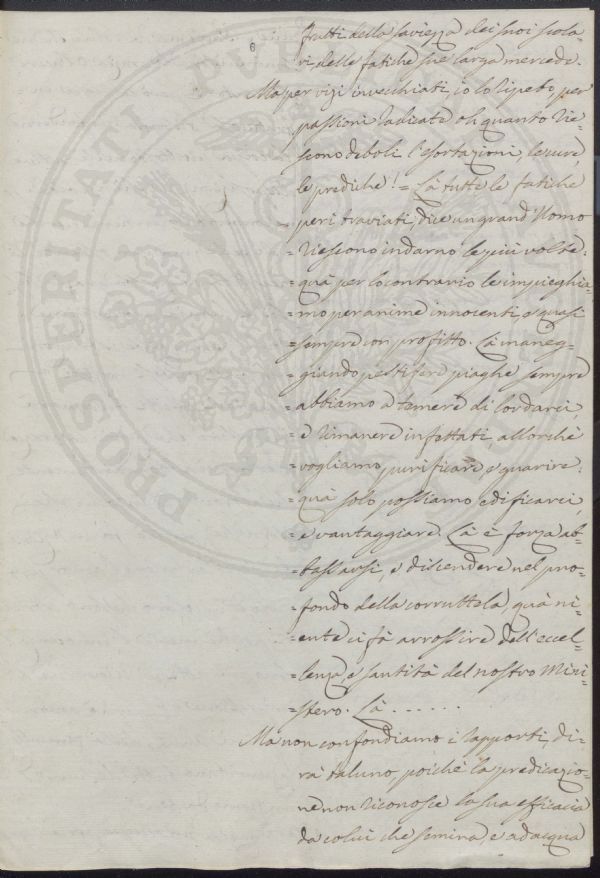 6
frutti della saviezza dei suoi scola-
ri, delle fatiche sue larga mercede.
Ma per vizi invecchiati, io lo ripeto, per
passioni radicate oh quanto rie-
scono deboli l'esortazioni, le cure
le prediche! = Là tutte le fatiche
= pei traviati, dice un grand'Uomo
= riescono indarno le più volte:
= quà per lo contrario le impieghia-
= mo per anime innocenti, e quasi
= sempre con profitto. Là maneg-
= giando pestifere piaghe sempre
= abbiamo a temere di lordarci,
= e rimanere infettati allorchè
= vogliamo purificare, e guarire:
= quà solo possiamo edificarci,
= e vantaggiare. Là è forza ab-
= bassarsi, e discendere nel pro-
= fondo della corruttela, quà ni-
= ente ci fà arrossire dell'eccel-
= lenza, e santità del nostro Mini-
= stero. Là . . . . . .
Ma non confondiamo i rapporti, di-
rà taluno, poichè la predicazio-
ne non riconosce la sua efficacia
da colui che semina, e adacqua
PROSPERITATI PVBLICAE